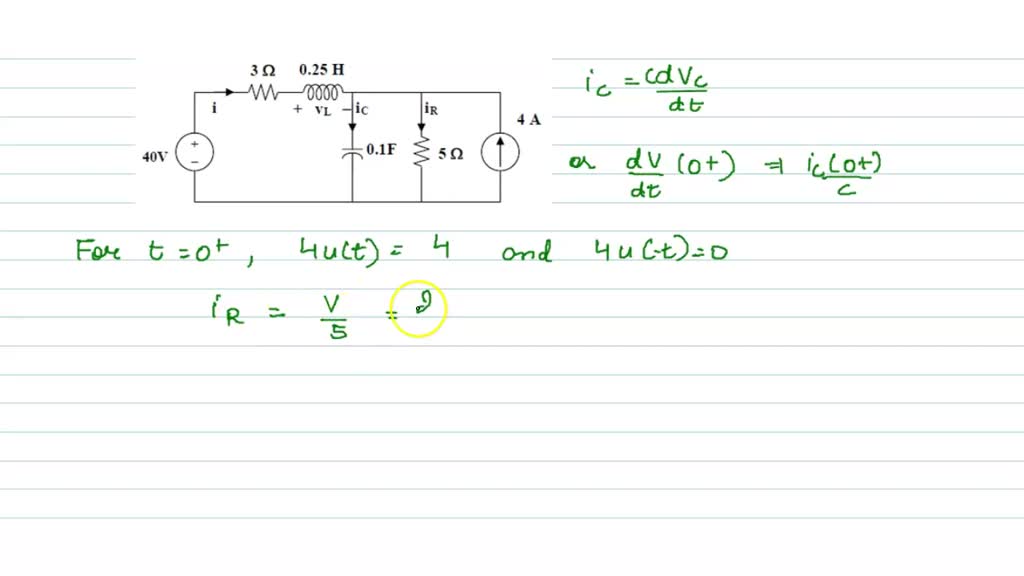 3 Ω 0.25 H
i + vL − iC iR 4 A
40V + − 0.1F 5 Ω
iC = CdVC/dt
or dV/dt (0+) ⇒ iC(0+)/C
For t = 0+, 4u(t) = 4 and 4u(-t) = 0
iR = V/5 =